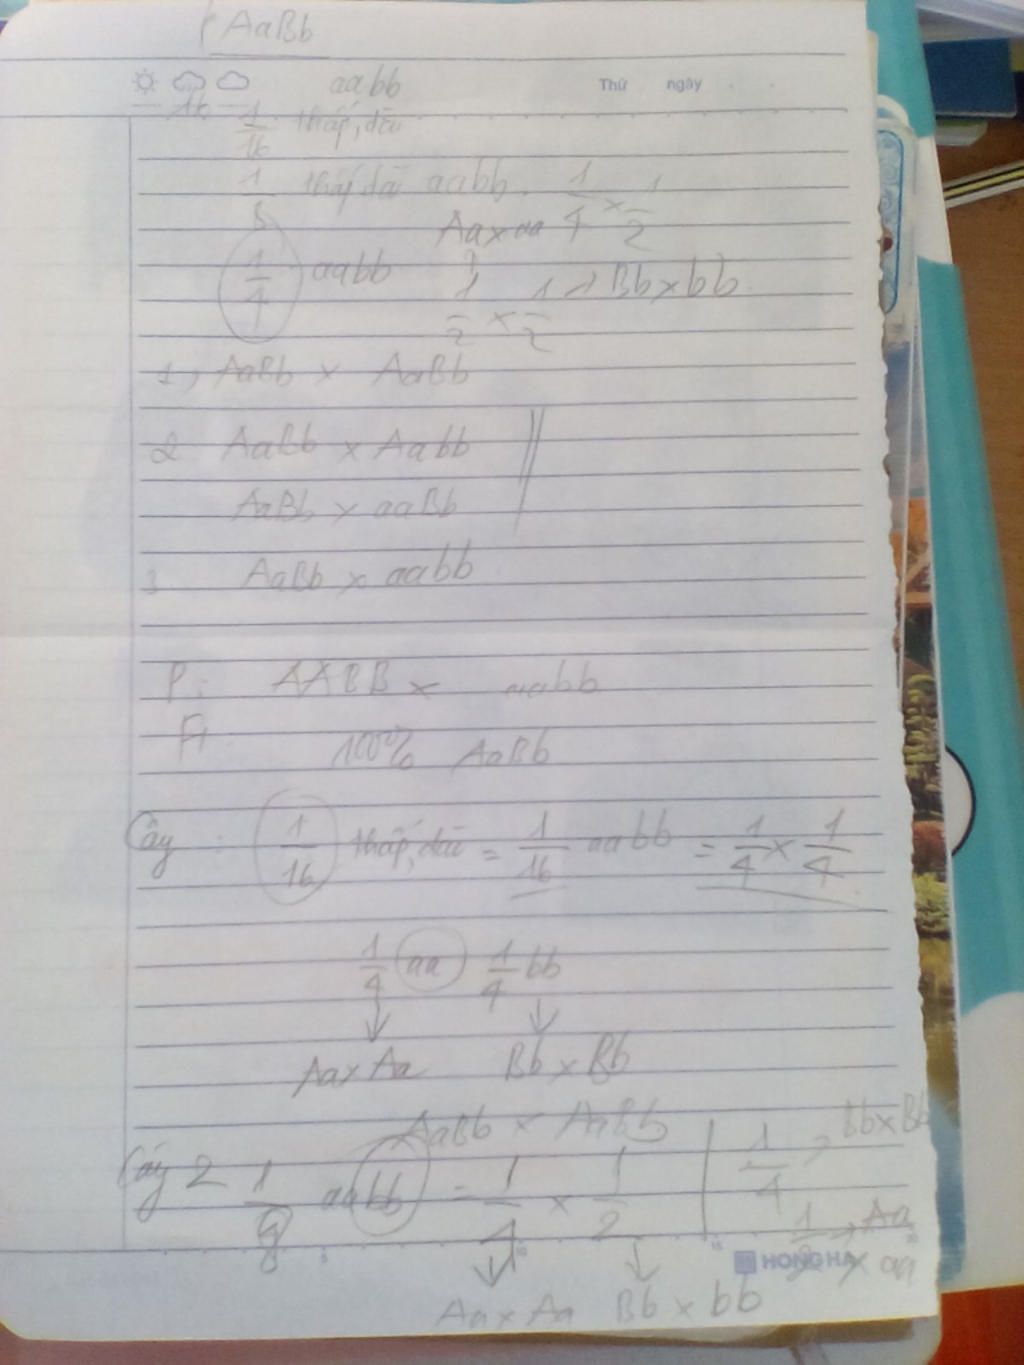 AaBb
aabb
Thứ ngày
16
1/16 thấp, dài
1/8 thấp dài aabb. 1/4 × 1/2
Aa × aa
1/4 aabb
1/2 × 1/2 → Bb × bb
1, AaBb × AaBb
2 AaBb × Aabb
AaBb × aaBb
3 AaBb × aabb
P: AABB × aabb
F1 100% AaBb
Cây : 1/16 thấp, dài = 1/16 aabb = 1/4 × 1/4
1/4 aa 1/4 bb
Aa × Aa Bb × Bb
AaBb × AaBb
Cây 2 1/8 aabb = 1/4 × 1/2
1/4 → Bb × Bb
1/2 → Aa × aa
HONG HA
Aa × Aa Bb × bb